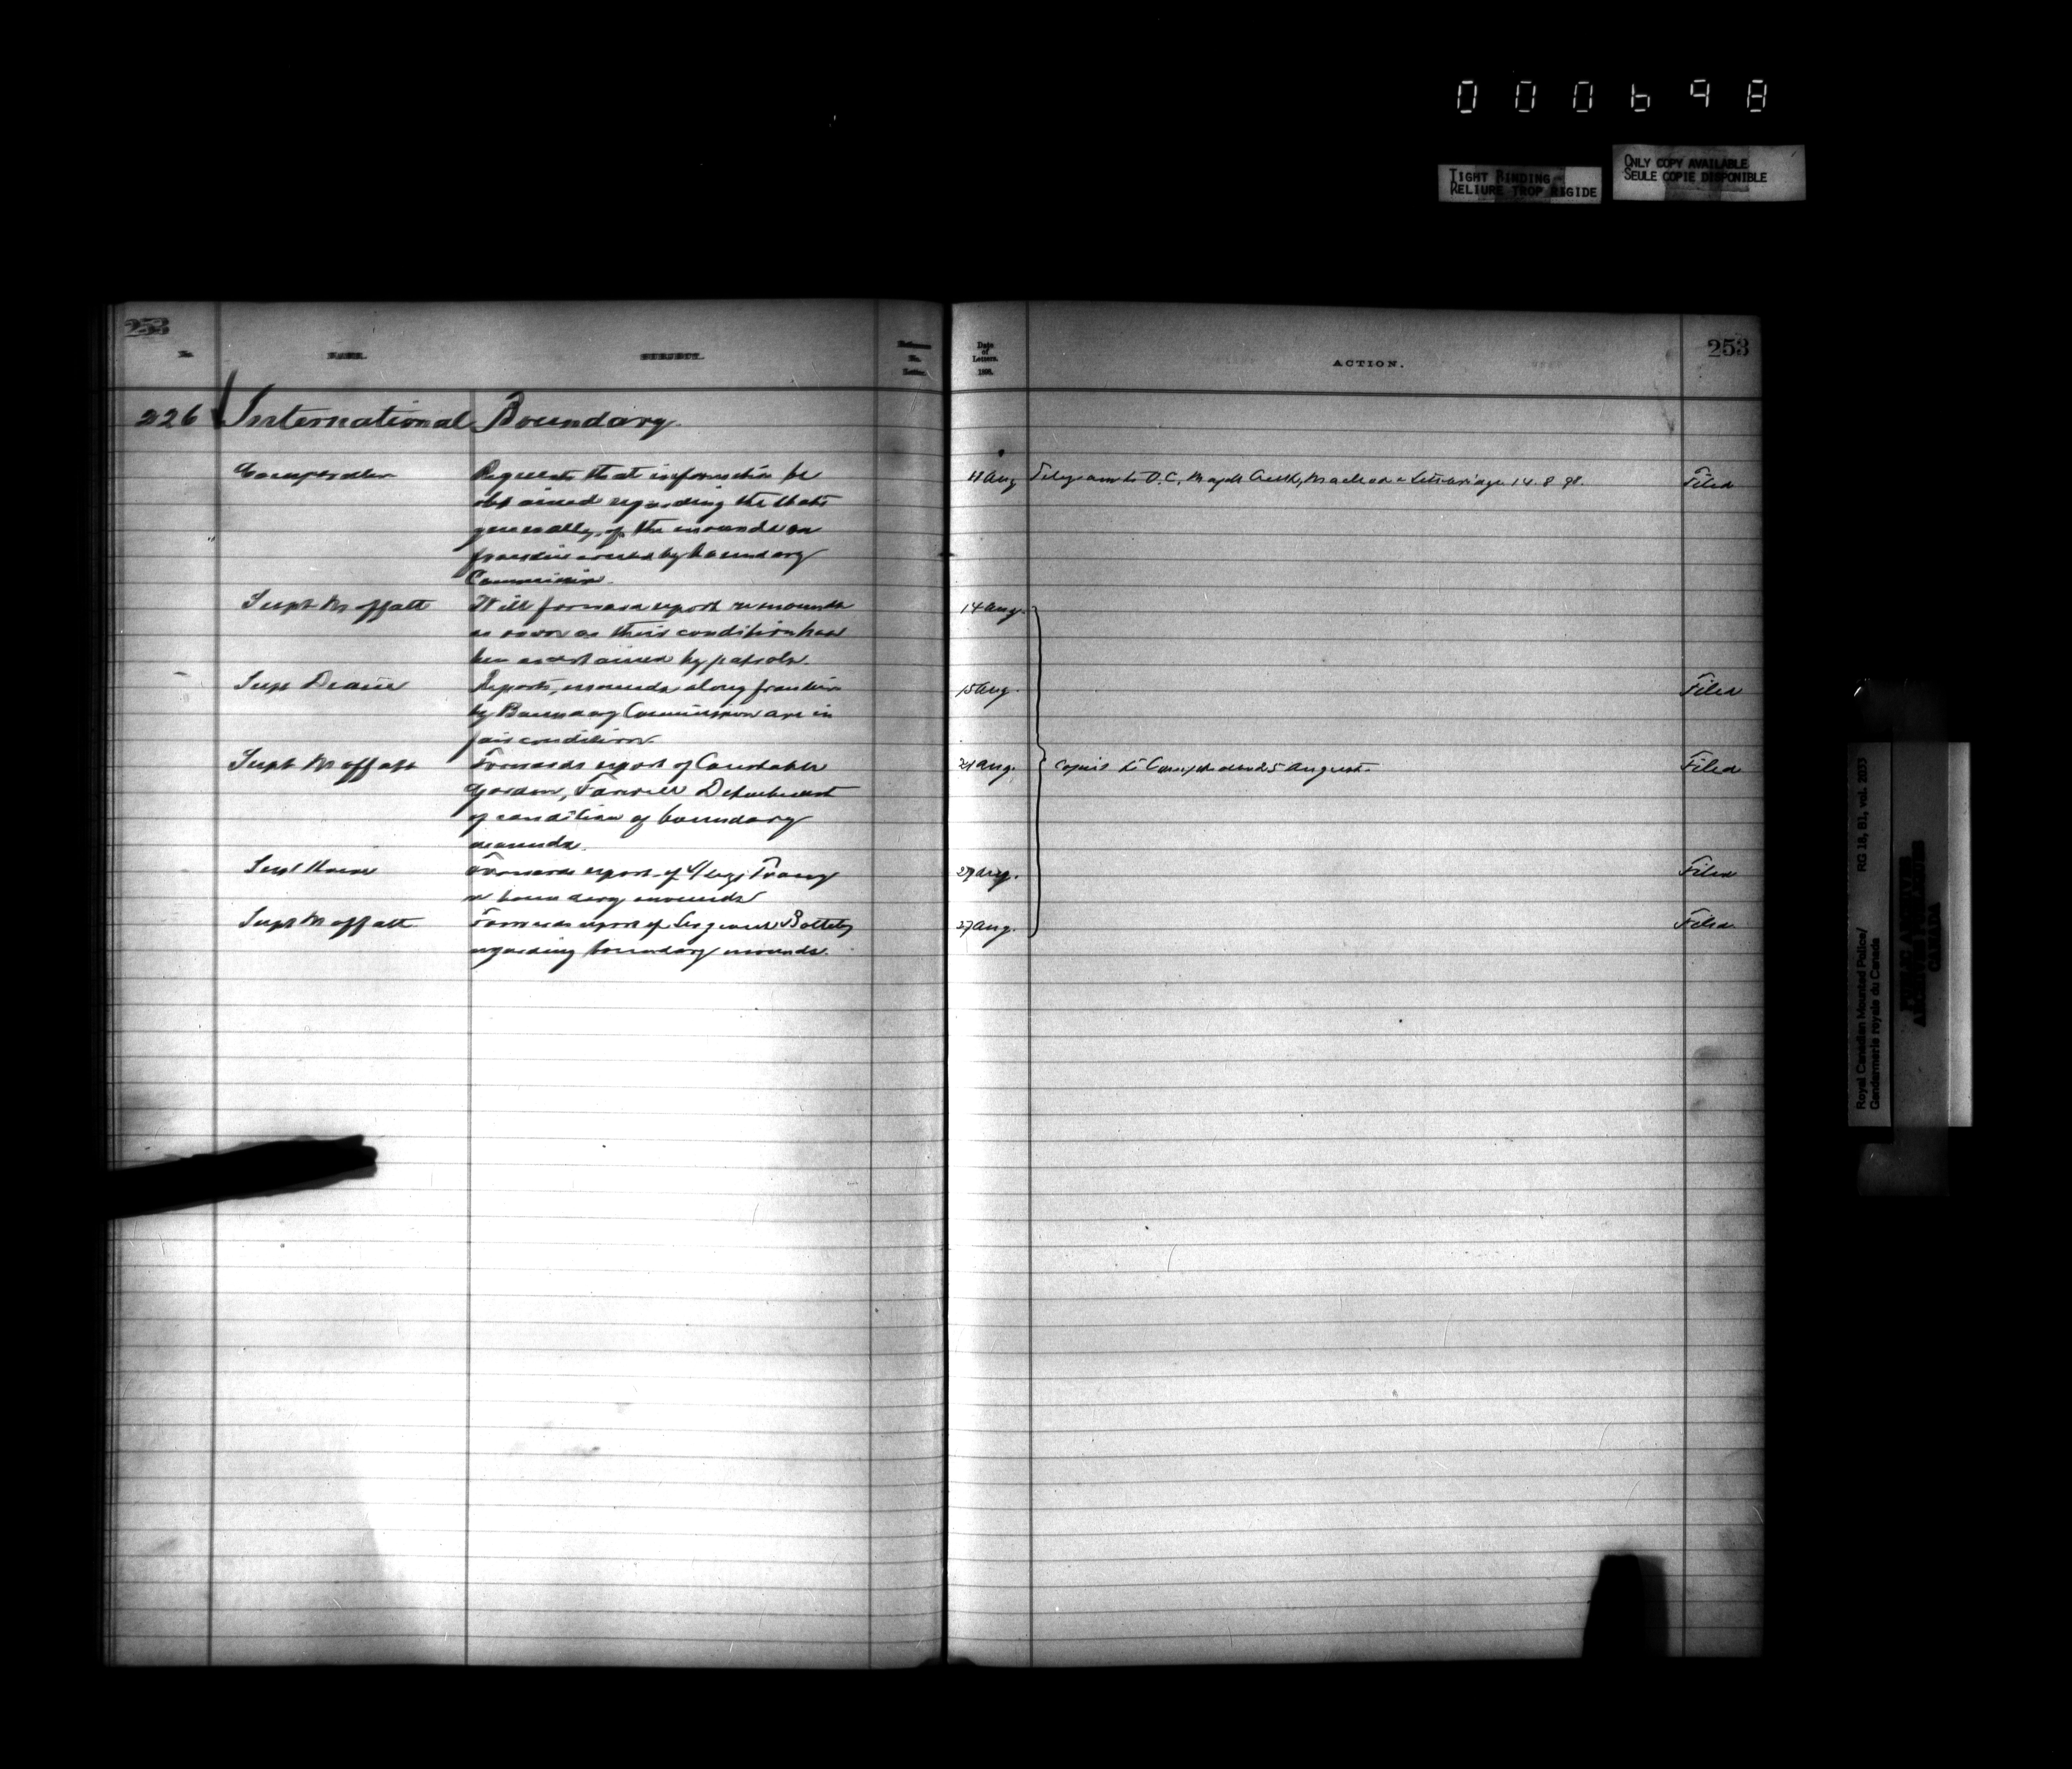 000698
TIGHT BINDING
RELIURE TROP RIGIDE
ONLY COPY AVAILABLE
SEULE COPIE DISPONIBLE
253
No.
NAME.
SUBJECT.
Reference
No.
Letter.
Date
of
Letters.
189
ACTION.
253
226 International Boundary.
Comptroller
Requests that information be
obtained regarding the state
generally, of the mounds on
frontier erected by boundary
Commission.
11 Aug
Telegram to O.C. Maple Creek, Macleod & Lethbridge 14.8.98.
Filed
Supt Moffatt
Will forward report re mounds
as soon as their condition has
been ascertained by patrols.
14 Aug.
Supt Deane
Reports, mounds along frontier
by Boundary Commission are in
fair condition.
15 Aug.
Filed
Supt Moffatt
Forwards report of Constable
Gordon, Farwell Detachment
of condition of boundary
mounds.
21 Aug.
Copies to Comptroller 25 August.
Filed
Supt
Forwards report of S/Sergt
boundary mounds
Aug.
Filed
Supt Moffatt
Forwards report of Sergeant
regarding boundary mounds.
27 Aug.
Filed
Royal Canadian Mounted Police/
Gendarmerie royale du Canada
RG 18, B1, vol. 2033
PUBLIC ARCHIVES
ARCHIVES PUBLIQUES
CANADA